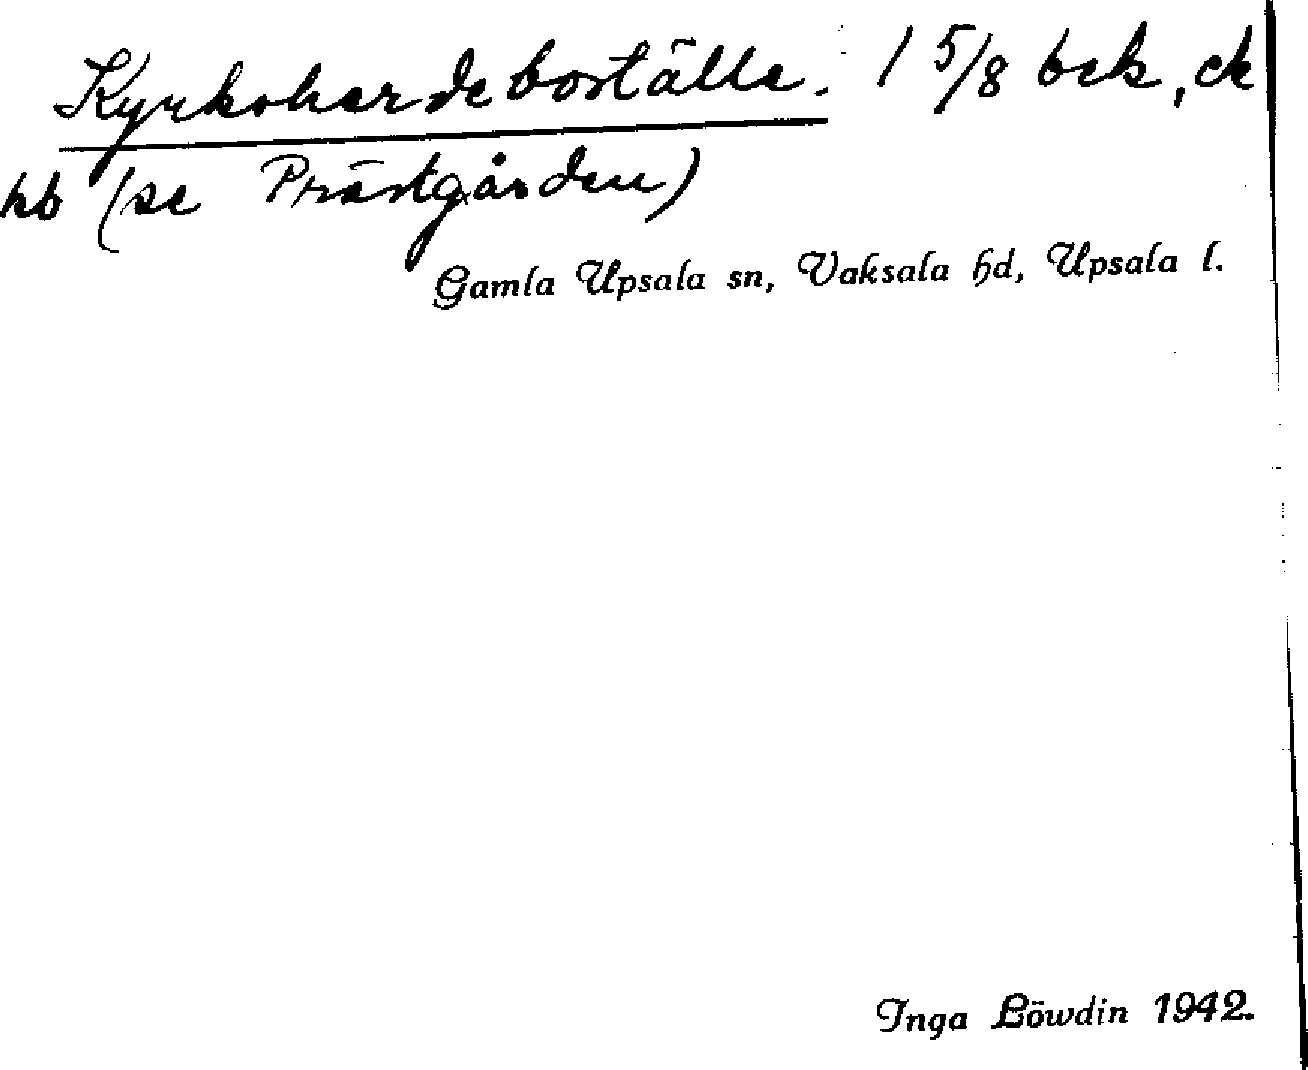 Kyrkoherdeboställe. 1 5/8 bek, ck
kb (se Prästgården)
Gamla Upsala sn, Vaksala hd, Upsala l.
Inga Löwdin 1942.